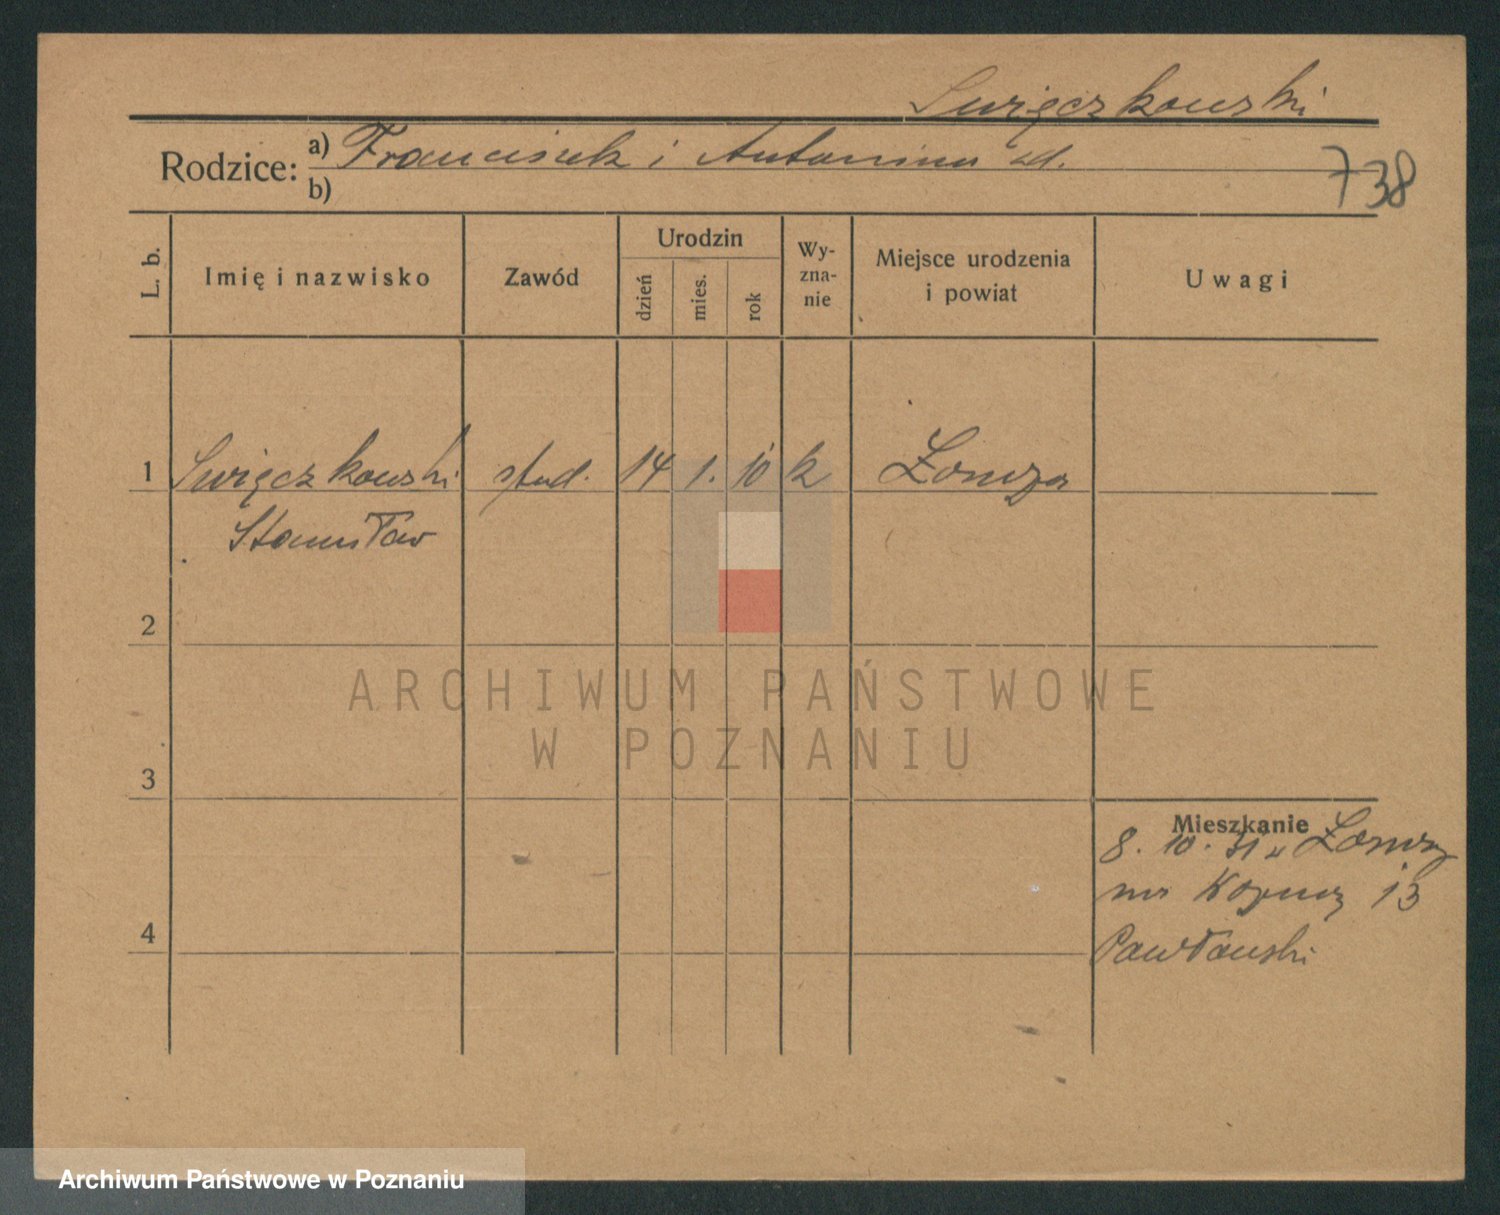 Swięczkowski
Rodzice: a) Franciszek i Antonina
b)
738
L. b.
Imię i nazwisko
Zawód
Urodzin
dzień
mies.
rok
Wy-
zna-
nie
Miejsce urodzenia
i powiat
Uwagi
1 Swięczkowski stud. 14 1. 10 k Łomża
Stanisław
2
3
Mieszkanie
8. 10. 31 z Łomży
13
4
Pawłowski
ARCHIWUM PAŃSTWOWE
W POZNANIU
Archiwum Państwowe w Poznaniu